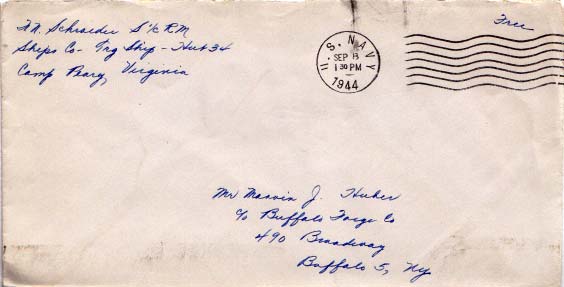 F.N. Schroeder S 1/c R M
Ships Co - Trg Ship - Hut 34
Camp Peary, Virginia
Free
U. S. NAVY
SEP 8
1 30 PM
1944
Mr Marvin J. Huber
c/o Buffalo Forge Co
490 Broadway
Buffalo 5, Ny